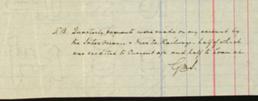 N.B. Quarterly payments were made on my account by
the Interoceanic & Mexico Railways. half of which
was credited to Current a/c and half to Loan a/c